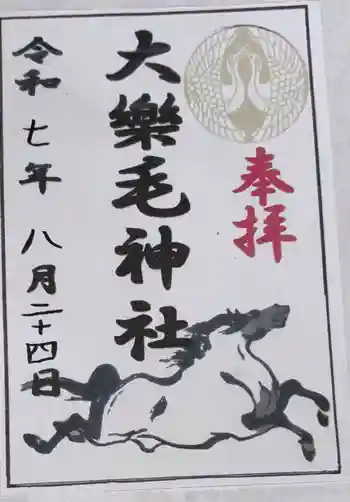 奉拝
大樂毛神社
令和七年八月二十四日